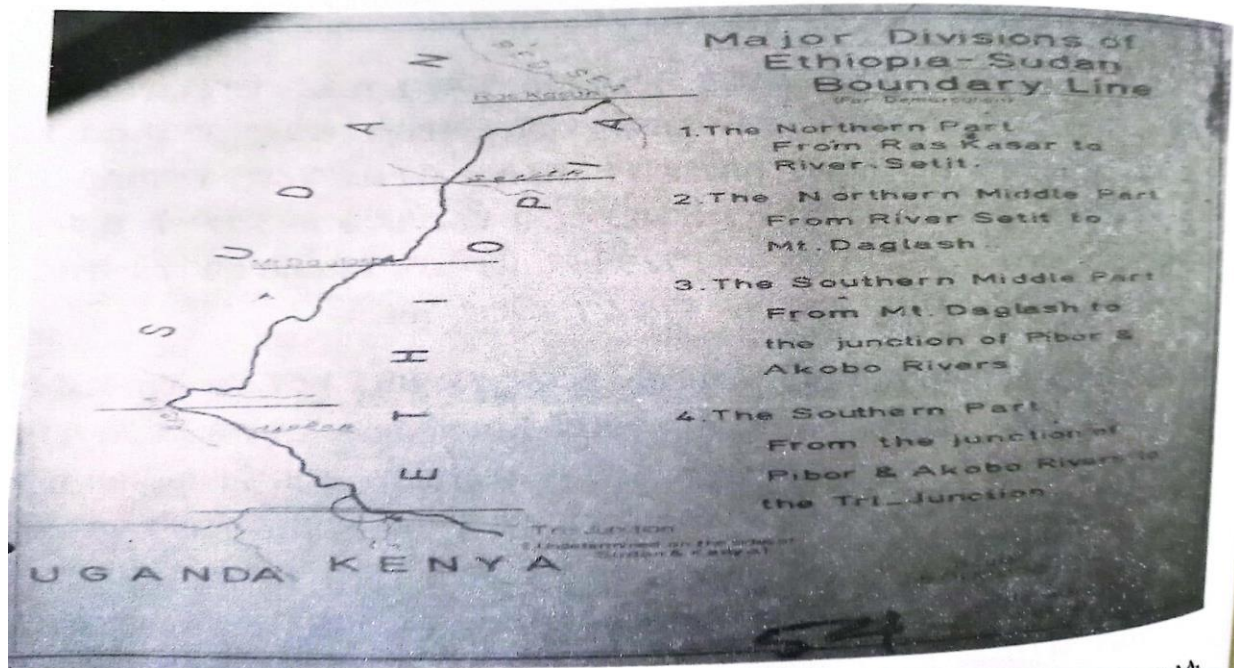 Major Divisions of
Ethiopia-Sudan
Boundary Line
(For Demarcation)
1.The Northern Part
From Ras Kasar to
River.Setit.
2.The Northern Middle Part
From River Setit to
Mt.Daglash
3.The Southern Middle Part
From Mt. Daglash to
the junction of Pibor &
Akobo Rivers
4.The Southern Part
From the junction of
Pibor & Akobo Rivers to
the Tri_Junction
SUDAN
ETHIOPIA
RED SEA
Ras Kasar
Mt Daglash
Tri-Junction
(Undetermined on the side of
Sudan & Kenya)
UGANDA
KENYA
54